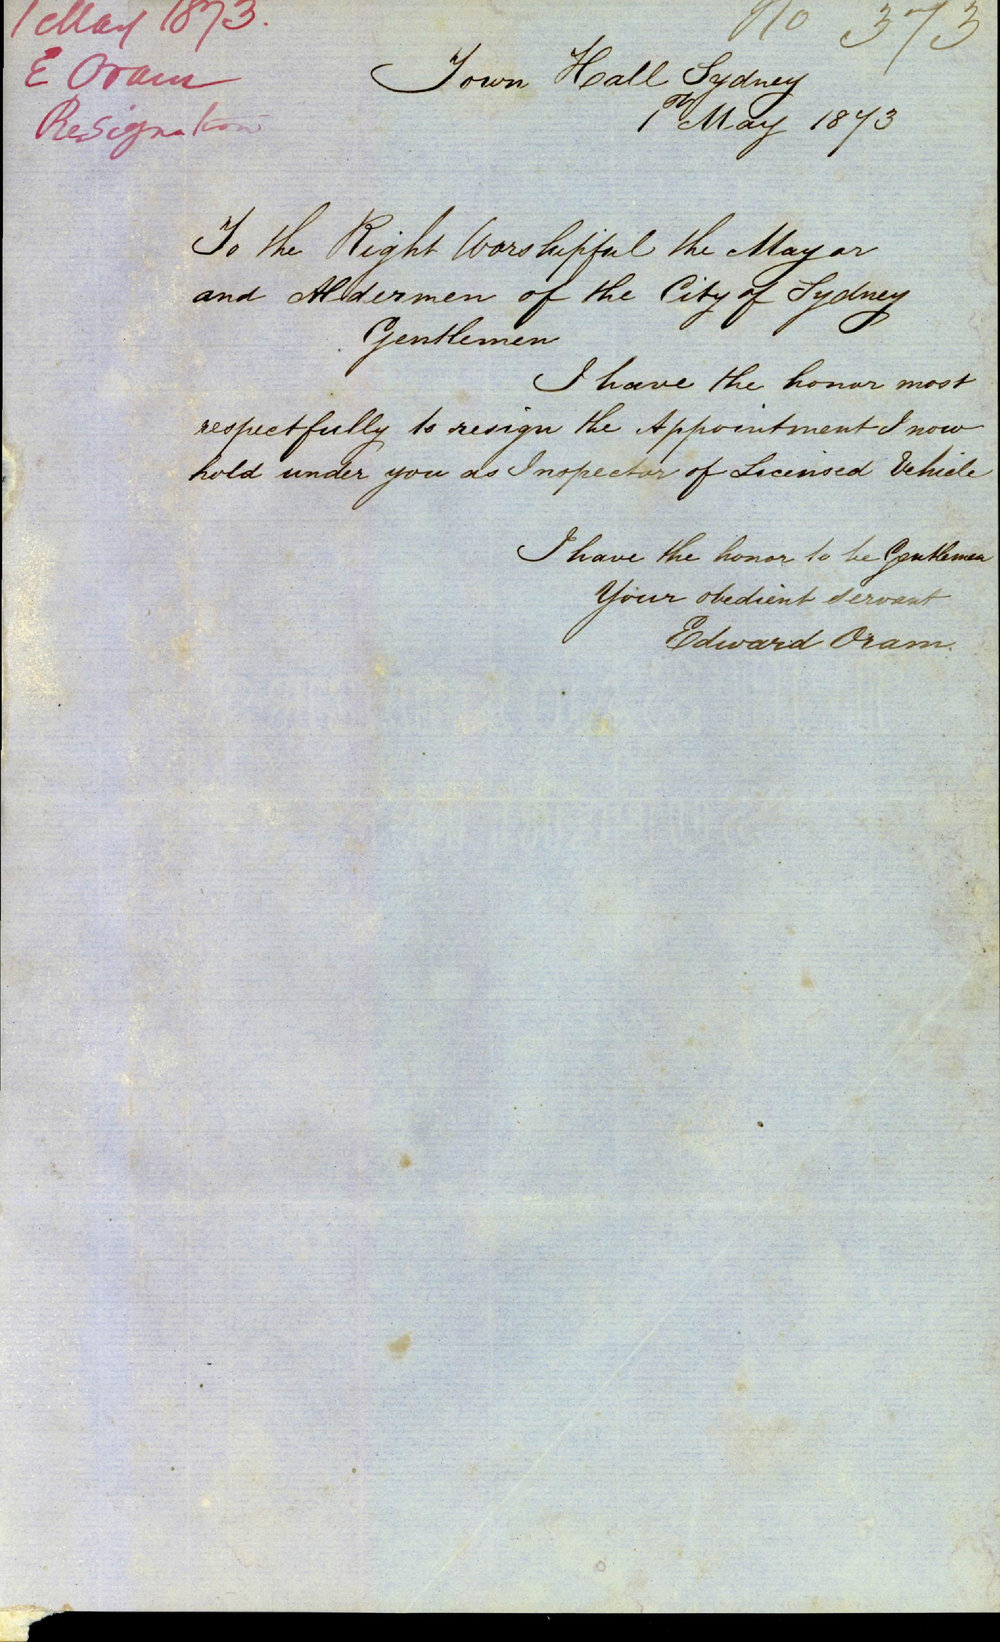 1 May 1873.
E Oram
Resignation
No 373
Town Hall Sydney
1th May 1873
To the Right Worshipful the Mayor
and Aldermen of the City of Sydney
Gentlemen
I have the honor most
respectfully to resign the Appointment I now
hold under you as Inspector of Licensed Vehicle
I have the honor to be Gentlemen
Your obedient servant
Edward Oram.